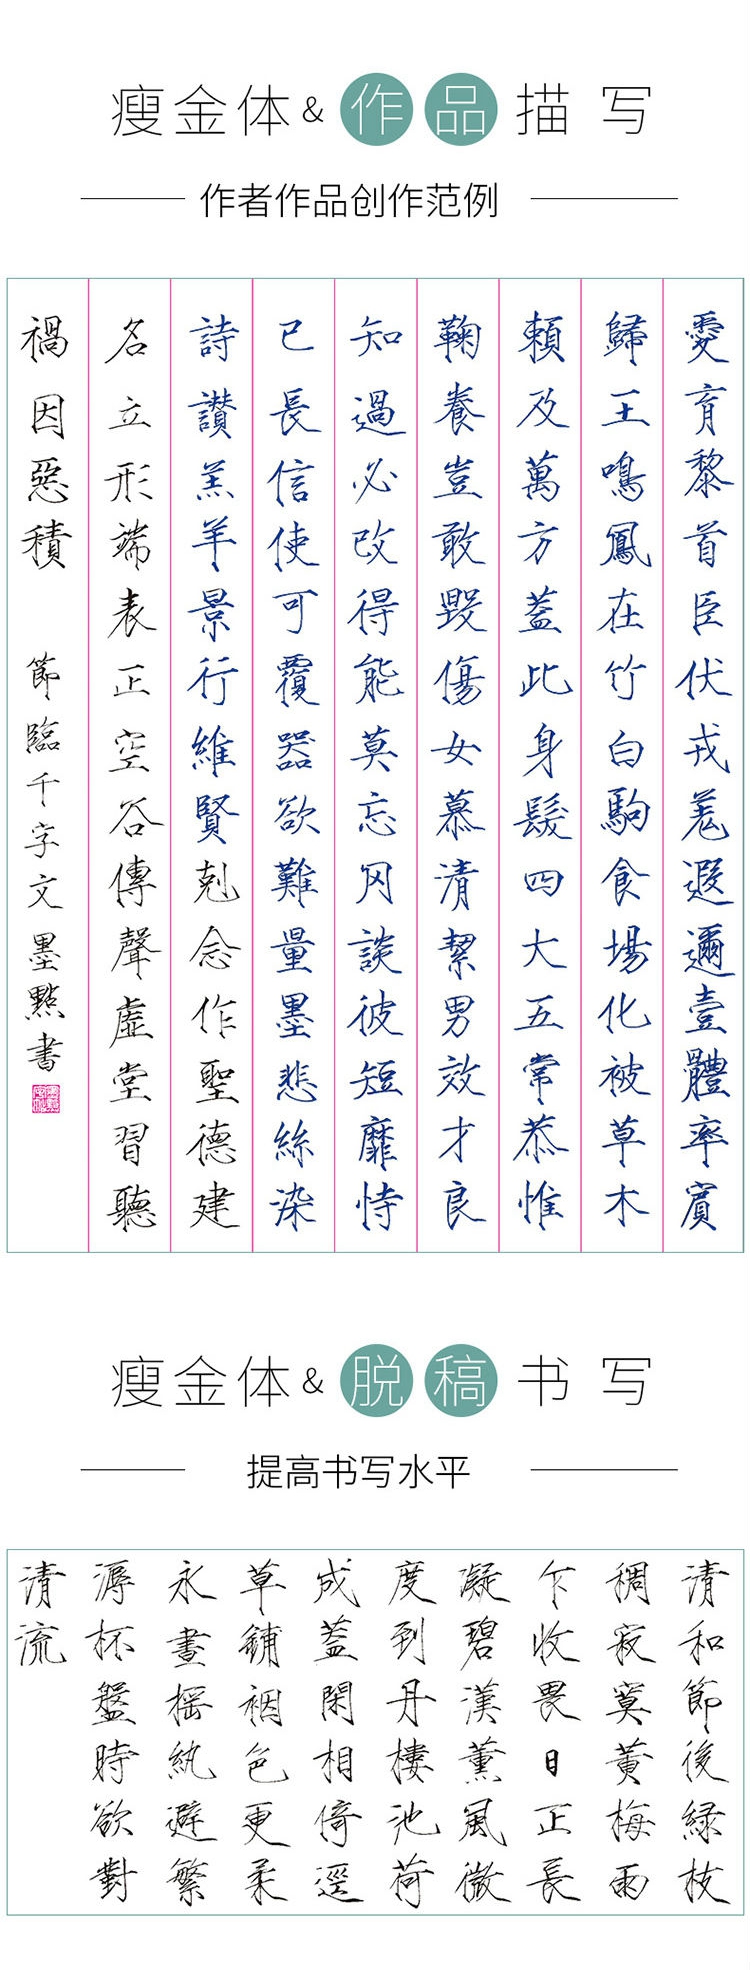 瘦金体&作品描写
作者作品创作范例
愛育黎首臣伏戎羌遐邇壹體率賓
歸王鳴鳳在竹白駒食場化被草木
賴及萬方蓋此身髮四大五常恭惟
鞠養豈敢毀傷女慕清絜男效才良
知過必改得能莫忘罔談彼短靡恃
已長信使可覆器欲難量墨悲絲染
詩讚羔羊景行維賢剋念作聖德建
名立形端表正空谷傳聲虛堂習聽
禍因惡積 節臨千字文墨點書
瘦金体&脱稿书写
提高书写水平
清和節後緑枝
稠寂寞黃梅雨
乍收畏日正長
凝碧漢薰風微
度到丹樓池荷
成蓋閑相倚逕
草鋪裀色更柔
永晝搖紈避繁
溽杯盤時欲對
清流